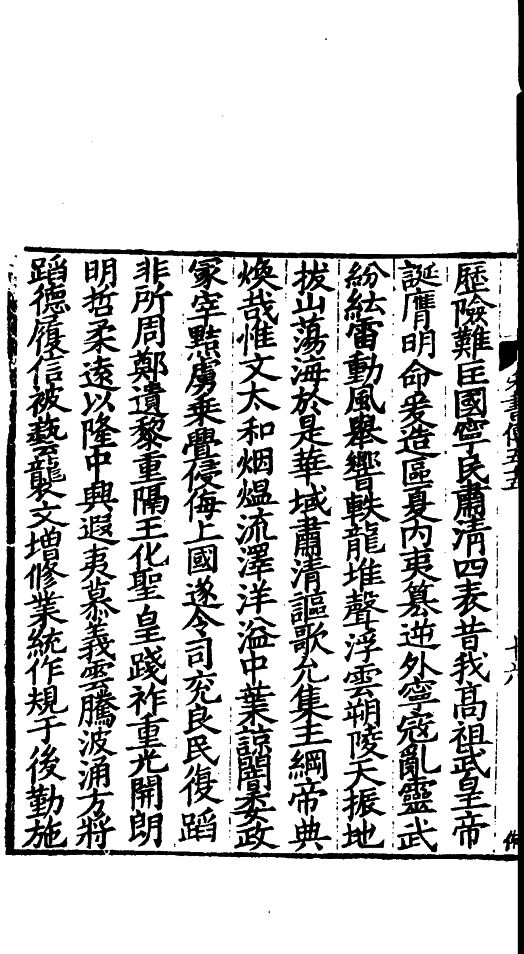 歷險難匡國寧民肅清四表昔我高祖武皇帝
誕膺明命爰造區夏內夷篡逆外寧寇亂靈武
紛紜雷動風舉響軼龍堆聲浮雲朔陵天振地
拔山蕩海於是華域肅清謳歌允集王綱帝典
煥哉惟文太和烟熅流澤洋溢中葉諒闇委政
冢宰黠虜乘舋侵侮上國遂令司兖良民復蹈
非所周鄭遺黎重隔王化聖皇踐祚重光開朗
明哲柔遠以隆中興遐夷慕義雲騰波涌方將
蹈德履信被藝襲文增修業統作規于後勤施